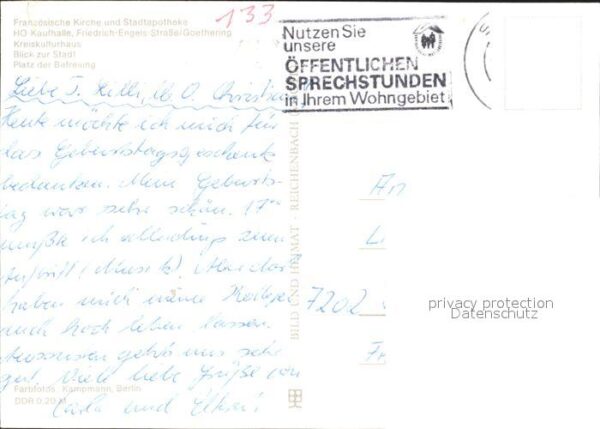 Französische Kirche und Stadtapotheke
HO Kaufhalle, Friedrich-Engels-Straße/Goethering
Kreiskulturhaus
Blick zur Stadt
Platz der Befreiung
133
Nutzen Sie
unsere
ÖFFENTLICHEN
SPRECHSTUNDEN
in Ihrem Wohngebiet
Liebe T. lb. O.
Heute möchte ich mich für
das Geburtstagsgeschenk
bedanken. Mein Geburts-
tag war sehr schön. 17
mußte ich allerdings zum
Auftritt (Musik). Aber dort
haben mich meine
auch hoch leben lassen.
Ansonsten geht's uns sehr
gut. Viele liebe Grüße von
und
BILD UND HEIMAT · REICHENBACH
An
7202
privacy protection
Datenschutz
Farbfotos: Kampmann, Berlin
DDR 0,20 M